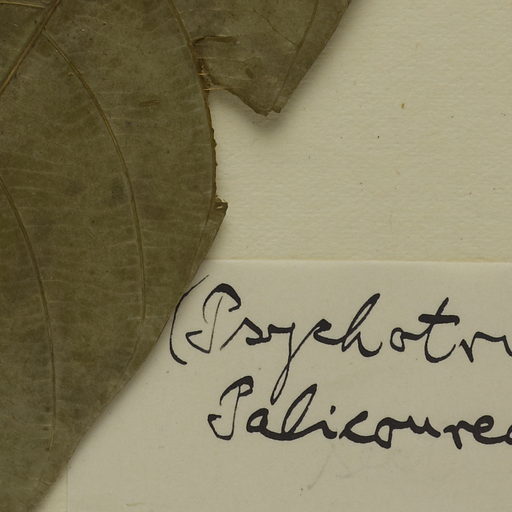 (Psychotri
Palicourea